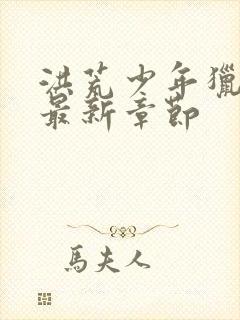 洪荒少年獵
最新章節
馬夫人